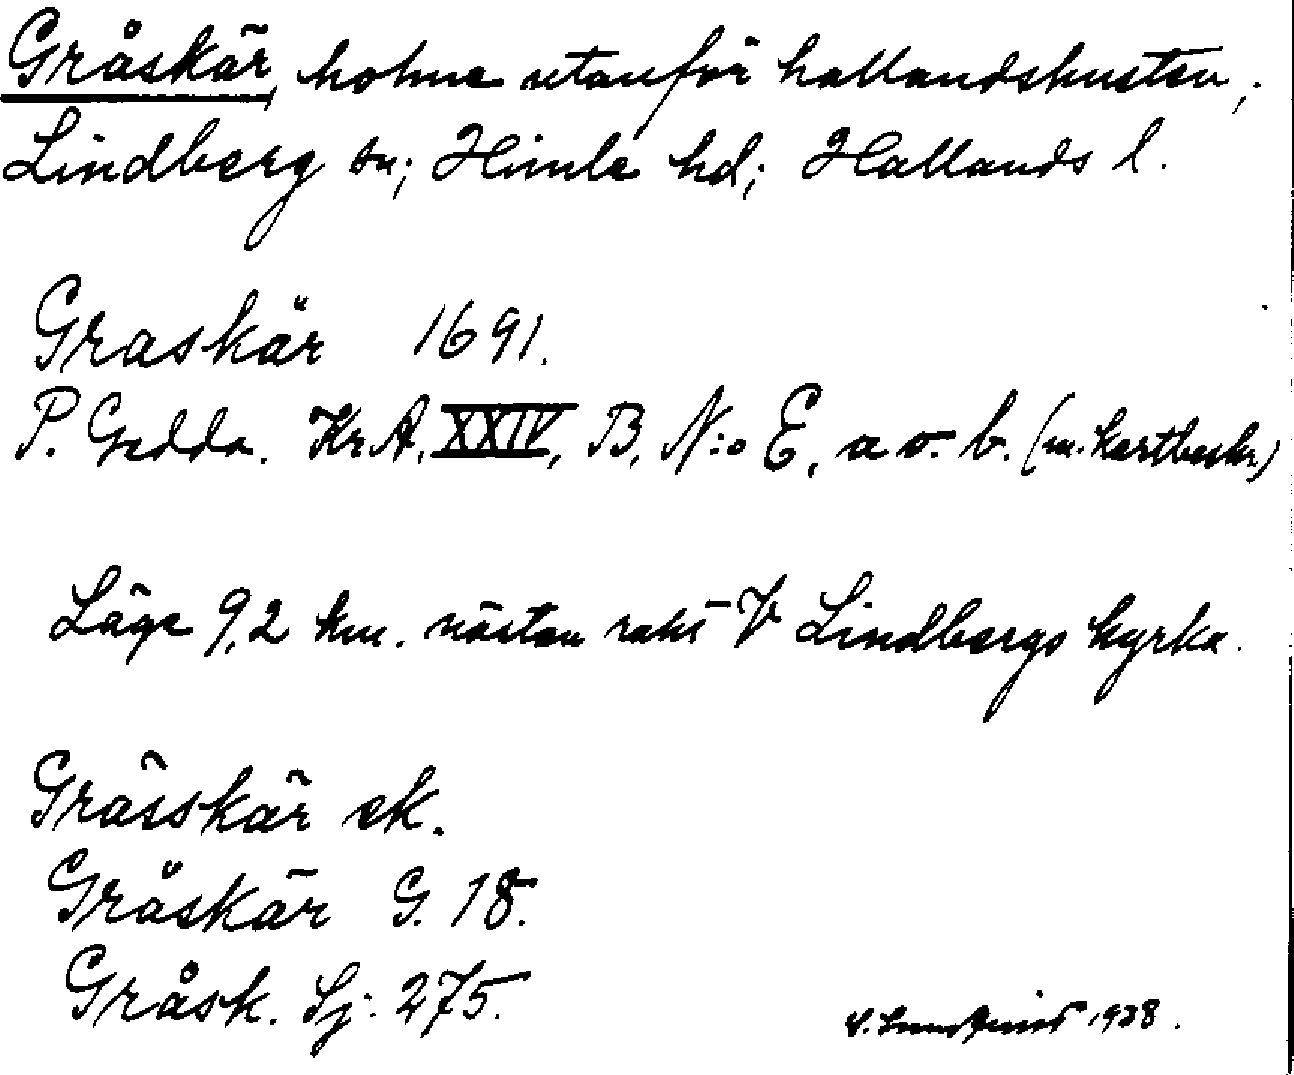 Gråskär, holme utanför hallandskusten,
Lindberg sn; Himle hd; Hallands l.
Graskär 1691.
P. Gedda. Kr.A. XXIV, B, N:o E, a o. b. (m. kartbeskr)
Läge 9,2 km. nästan rakt V Lindbergs kyrka.
Grässkär ek.
Gråskär G. 18.
Gråsk. Sj: 275.
1928.